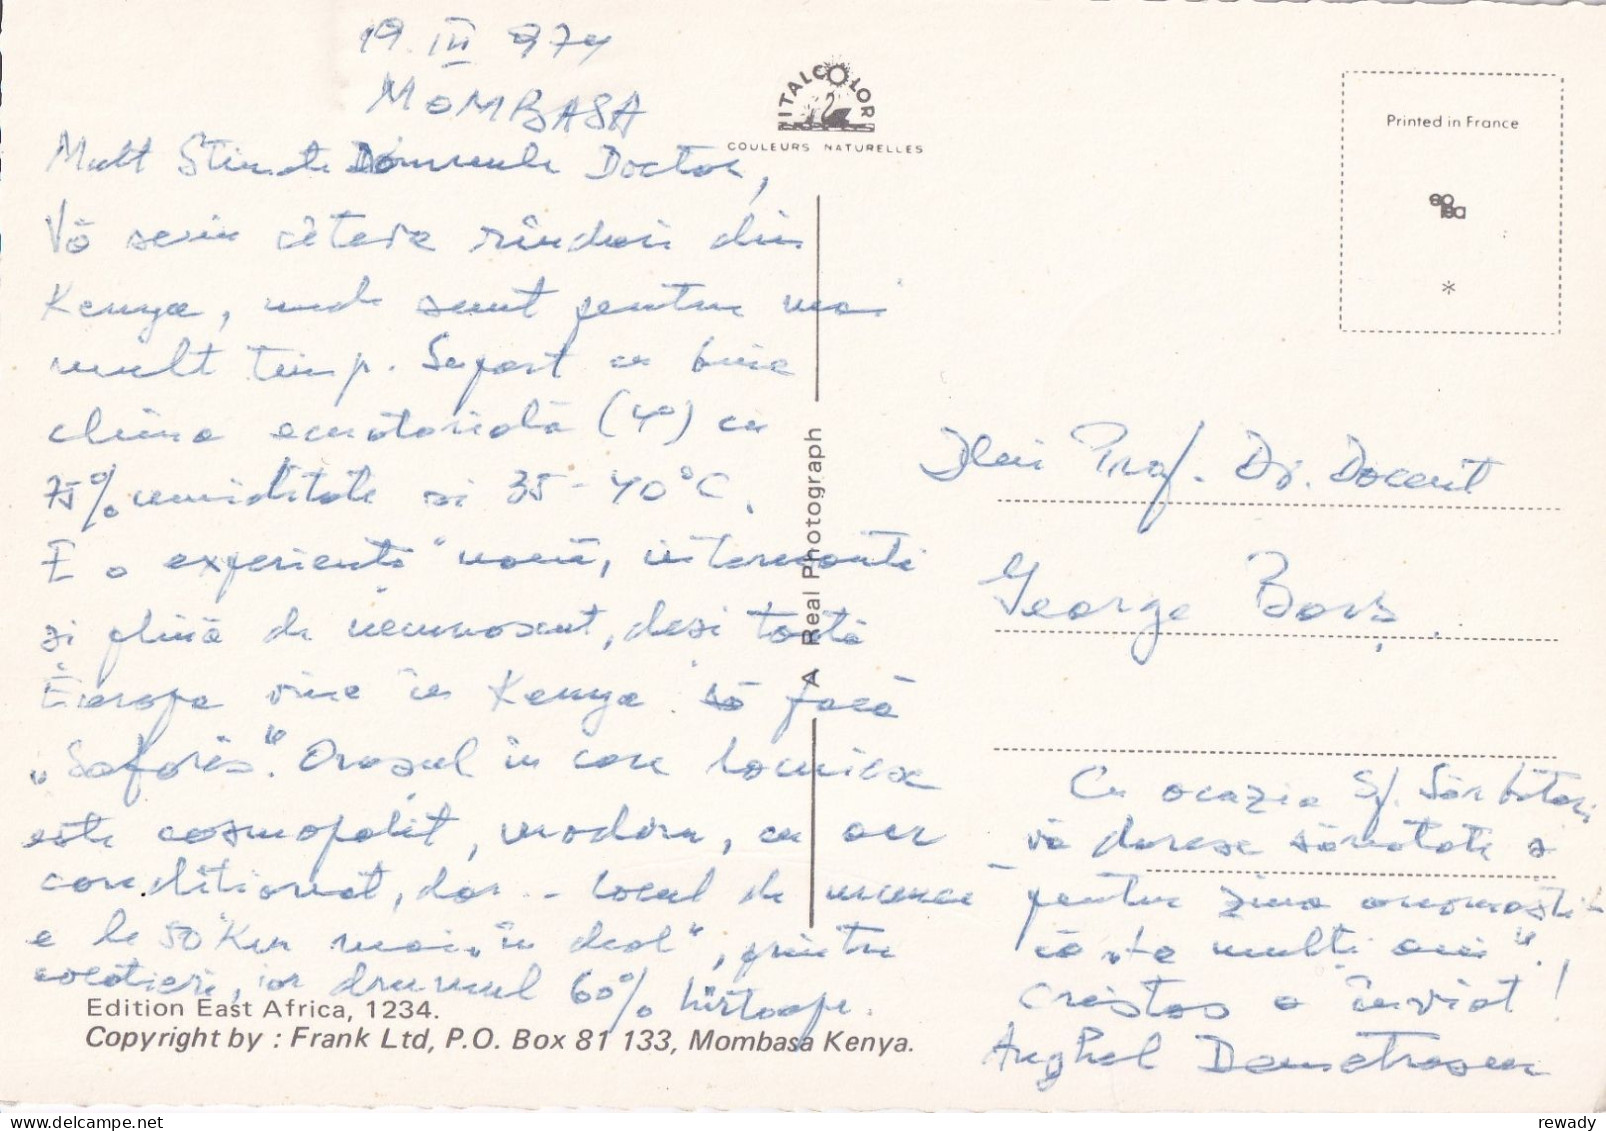 19. III 974
MOMBASA
Mult Stimate Domnule Doctor,
Vă scriu câteva rînduri din
Kenya, unde sunt pentru mai
mult timp. Suport cu bine
clima ecuatorială (4°) cu
75% umiditate si 35-40°C.
E o experientă nouă, interesantă
si plină de necunoscut, desi toată
Europa vine în Kenya să facă
„Safaris". Orasul în care locuiesc
este cosmopolit, modern, cu aer
conditionat, dar - locul de munca
e la 50 Km mai „în deal", printre
cocotieri, iar drumul 60% hîrtoape.
ITALCOLOR
COULEURS NATURELLES
A Real Photograph
Edition East Africa, 1234.
Copyright by : Frank Ltd, P.O. Box 81 133, Mombasa Kenya.
Printed in France
*
Dlui Prof. Dr. Docent
George Borș.
Cu ocazia Sf. Sărbători
vă doresc sănătate si
pentru ziua onomasti-
că „la multi ani",
Cristos a înviat!
Anghel Demetrescu
rewady